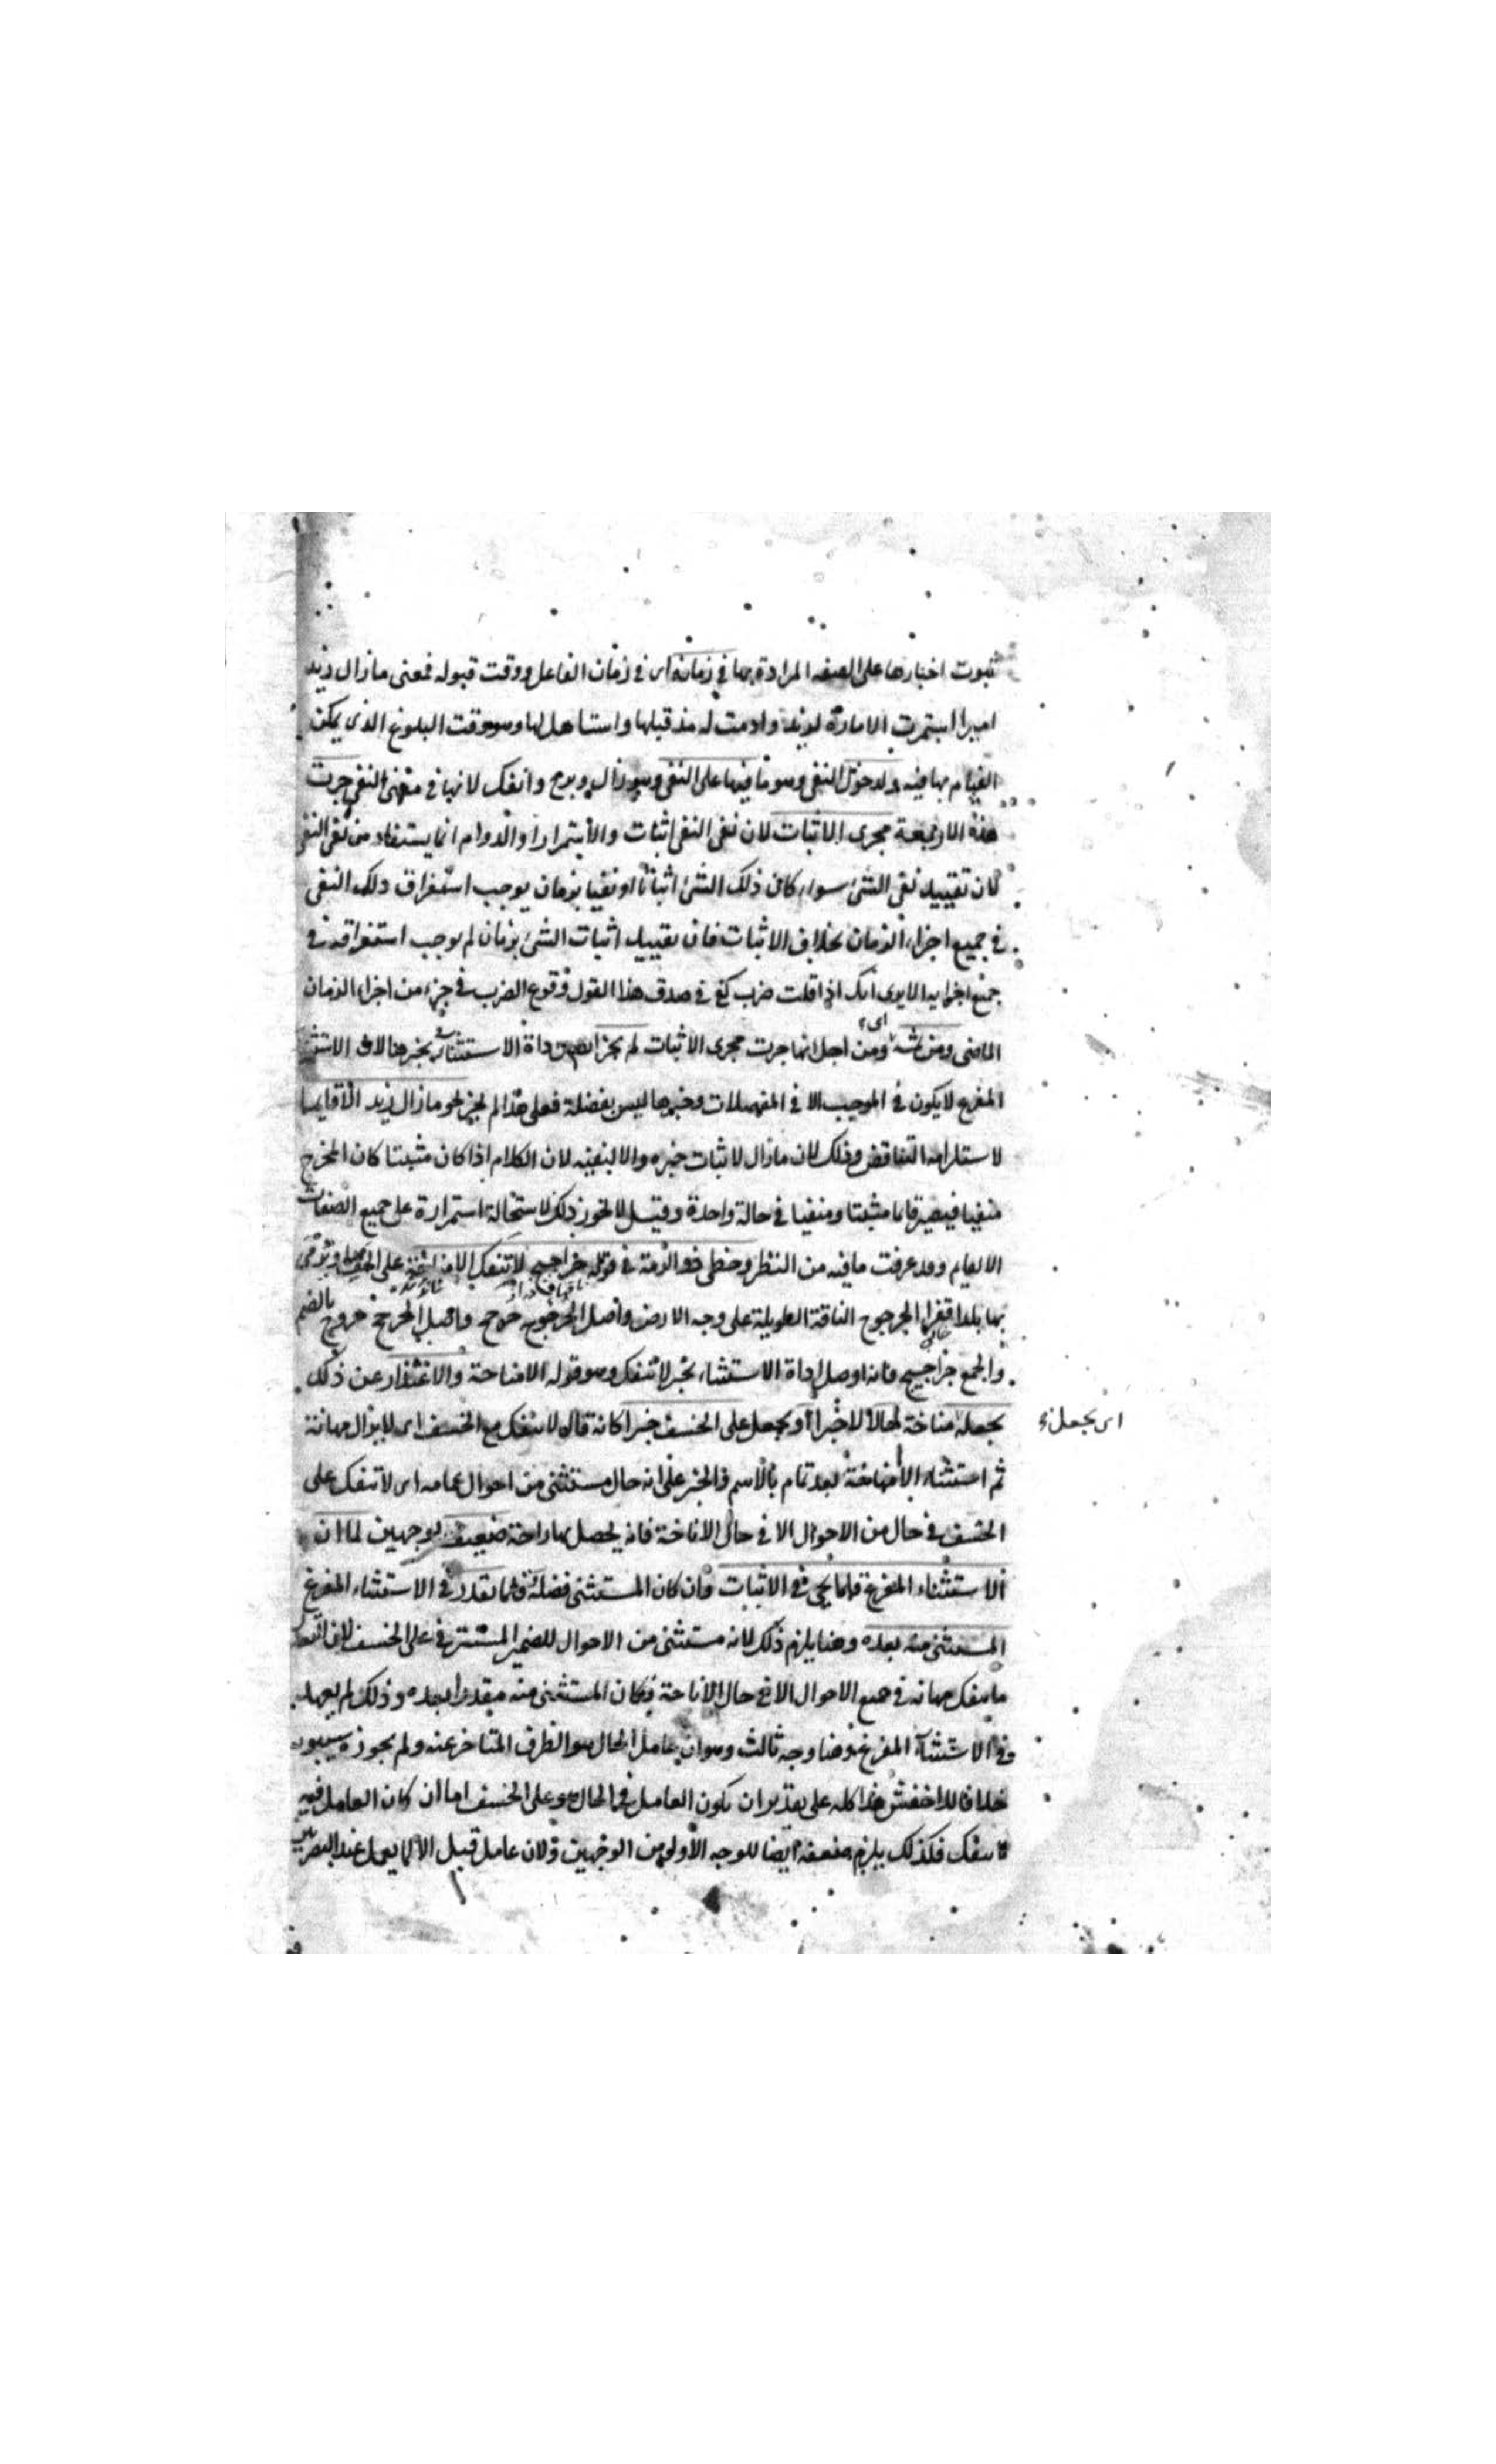 ثبوت اخبارها على الصفة المرادة بها في زمانه اى في زمان الفاعل ووقت قبوله فمعنى مازال زيد
اميرا استمرت الامارة لزيد وادمت له مذ قبلها واستاهل لها وهو وقت البلوغ الذى يمكن
القيام بها فيه ولدخول النفى وهو ما فيها على النفى وهو زال وبرح وانفك لانها في معنى النفى جرت
هذه الاربعة مجرى الاثبات لان نفى النفى اثبات والاستمرار والدوام انما يستفاد من نفى النفى
لان تقييد نفى الشئ سواء كان ذلك الشئ اثباتا او نفيا بزمان يوجب استغراق ذلك النفى
في جميع اجزاء الزمان بخلاف الاثبات فان تقييد اثبات الشئ بزمان لم يوجب استغراقه في
جميع اجزائه الا يرى انك اذا قلت ضرب كفى في صدق هذا القول وقوع الضرب في جزء من اجزاء الزمان
الماضى ومن ثمه اى ومن اجل انها جرت مجرى الاثبات لم يجز اداة الاستثناء بخبرها لان الاستثناء
المفرغ لا يكون في الموجب الا في الفضلات وخبرها ليس بفضلة فعلى هذا لم يجز نحو مازال زيد الا قايما
لاستلزامه التناقض وذلك لان مازال لاثبات خبره والا لنفيه لان الكلام اذا كان مثبتا كان المخرج
منفيا فيصير قايما مثبتا ومنفيا في حالة واحدة وقيل لا يجوز ذلك لاستحالة استمراره على جميع الصفات
الا القيام وقد عرفت ما فيه من النظر وخطى ذو الرمة في قوله حراجيج لا تنفك الا مناخة على الخسف او نرمى
بها بلدا قفرا الحرجوج الناقة الطويلة على وجه الارض واصل الحرجوج حرجج واصل الحرجج حروج بالضم
والجمع حراجيج فانه اوصل اداة الاستثناء بخبر لا تنفك وهو قوله الا مناخة والاعتذار عن ذلك
بجعله مناخة حالا لا خبرا او يجعل على الخسف خبرا كانه قال لا تنفك مع الخسف اى لا يزال مهانة
اى بجعل
ثم استثناء الا مناخة بعد تمام بالاسم والخبر على انه حال مستثنى من احوال عامه اى لا تنفك على
الخسف في حال من الاحوال الا في حال الاناخة فانه يحصل بها راحة ضعيف بوجهين لما ان
الاستثناء المفرغ قلما يجئ في الاثبات وان كان المستثنى فضلة قلما تقدر في الاستثناء المفرغ
المستثنى منه بعده وهنا يلزم ذلك لانه مستثنى من الاحوال للضمير المستتر في على الخسف لان التقدير
ما ينفك مهانة في جميع الاحوال الا في حال الاناخة فكان المستثنى منه مقدرا بعده وذلك لم يعهد
في الاستثناء المفرغ وهنا وجه ثالث وهو ان عامل الحال هو الظرف المتاخر عنه ولم يجوزه سيبويه
خلافا للاخفش هذا كله على تقدير ان يكون العامل في الحال هو على الخسف اما ان كان العامل فيه
لا تنفك فكذلك يلزم ضعفه ايضا للوجه الاول من الوجهين ولان عامل قبل الا لا يعمل عند البصريين